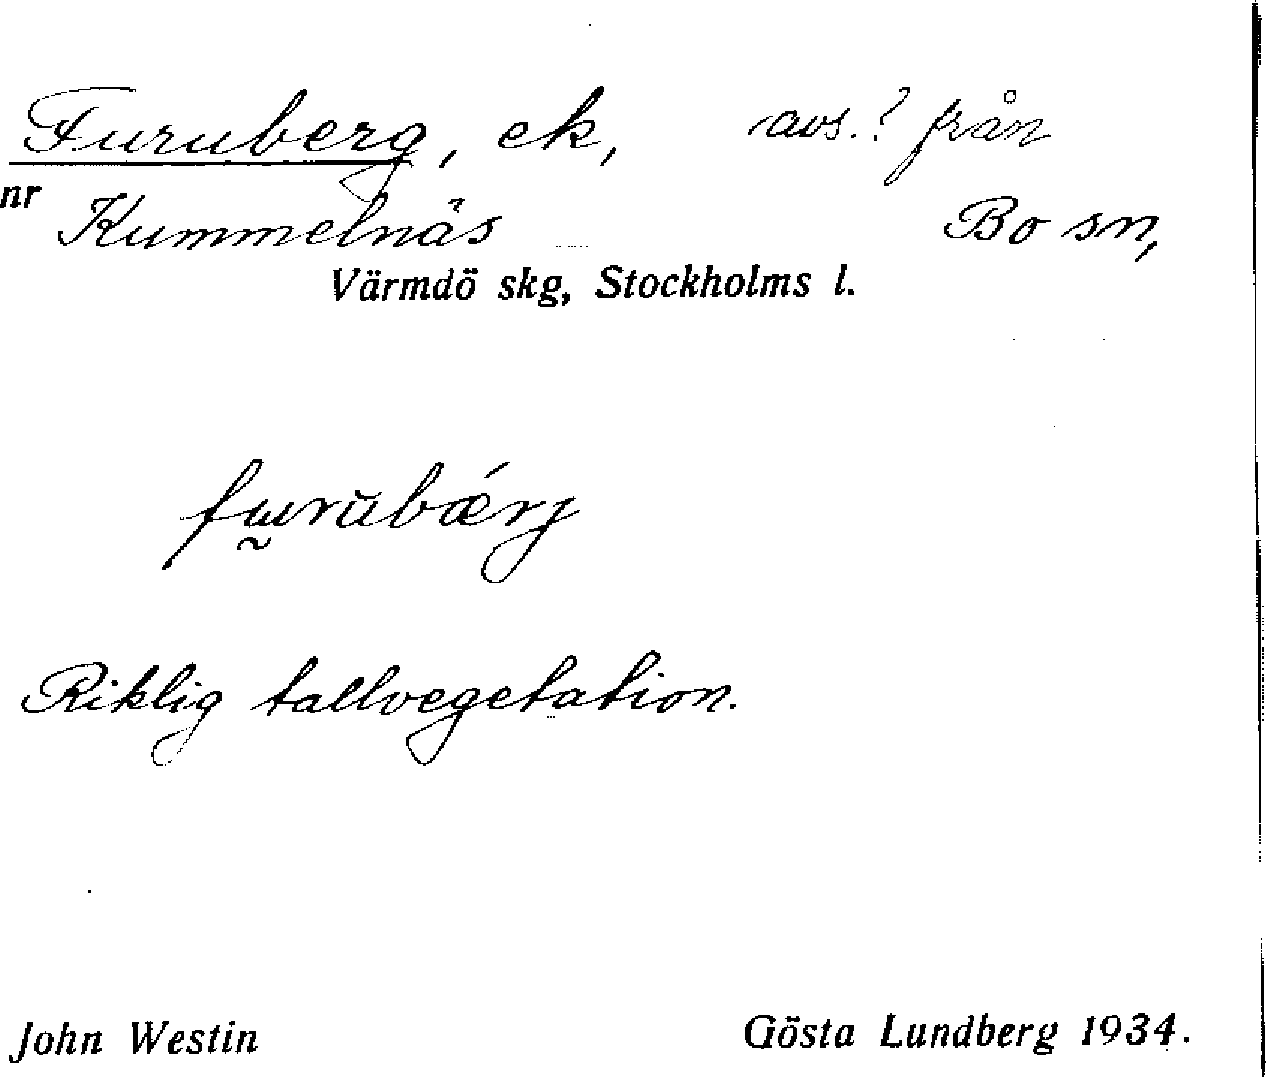 Furuberg, ek, avs.? från
nr Kummelnäs Bo sn,
Värmdö skg, Stockholms l.
fɯ̰rŭbǽrj
Riklig tallvegetation.
John Westin Gösta Lundberg 1934.